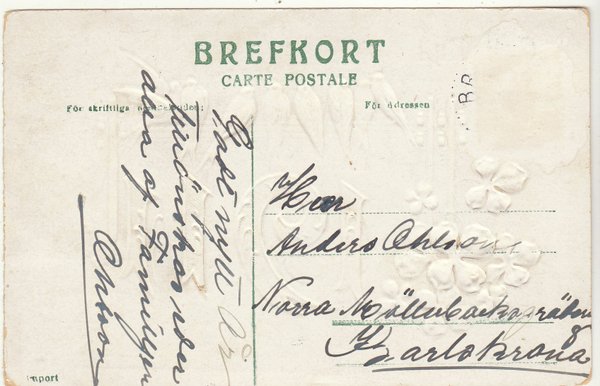 BREFKORT
CARTE POSTALE
För skriftliga meddelanden:
För adressen
BR
Godt nytt År
tillönskas eder
alla af Familjen
Ohlson
Herr
Anders Ohlsson
Norra Möllebacksgränd
Karlskrona
Import